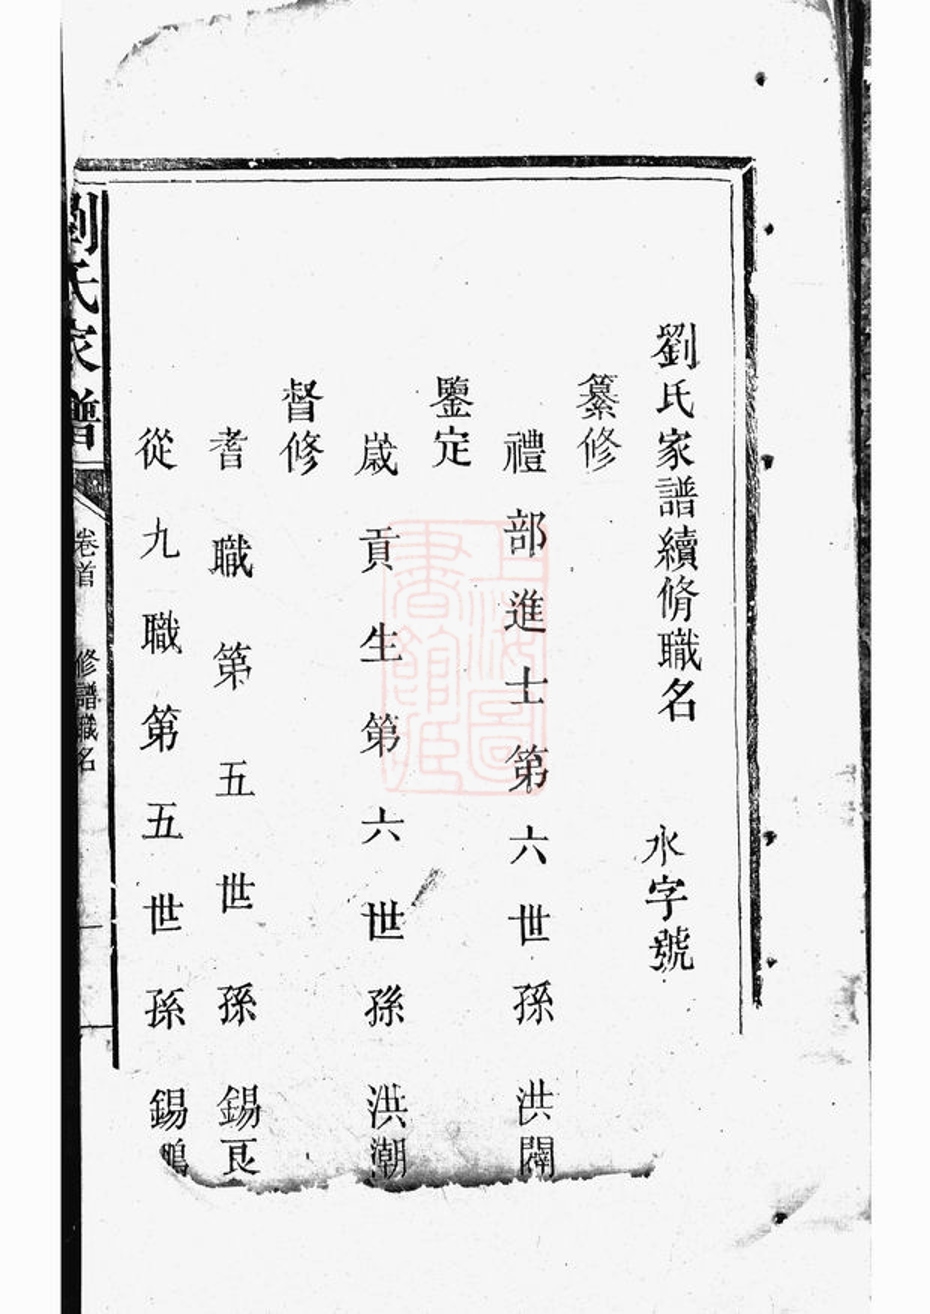 劉氏家譜續脩職名　水字號
纂修
禮部進士第六世孫　洪闢
鑒定
歲貢生第六世孫　洪潮
督修
耆職第五世孫　錫良
從九職第五世孫　錫鵬
劉氏家譜　卷首　修譜職名
上海圖書館藏